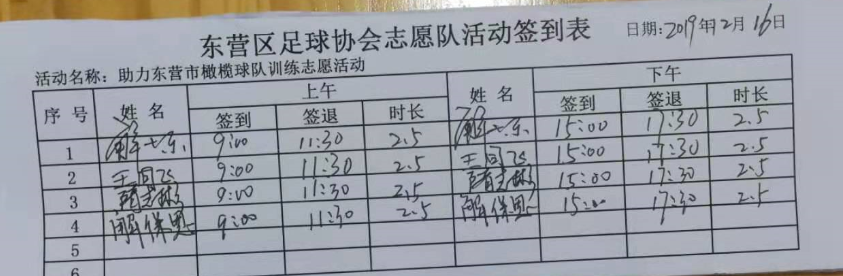 东营区足球协会志愿队活动签到表 日期:2019年2月16日
活动名称:助力东营市橄榄球队训练志愿活动
序号 姓名 上午 姓名 下午
签到 签退 时长 签到 签退 时长
1 9:00 11:30 2.5 15:00 17:30 2.5
2 王同飞 9:00 11:30 2.5 王同飞 15:00 17:30 2.5
3 9:00 11:30 2.5 15:00 17:30 2.5
4 解保恩 9:00 11:30 2.5 解保恩 15:00 17:30 2.5
5
6